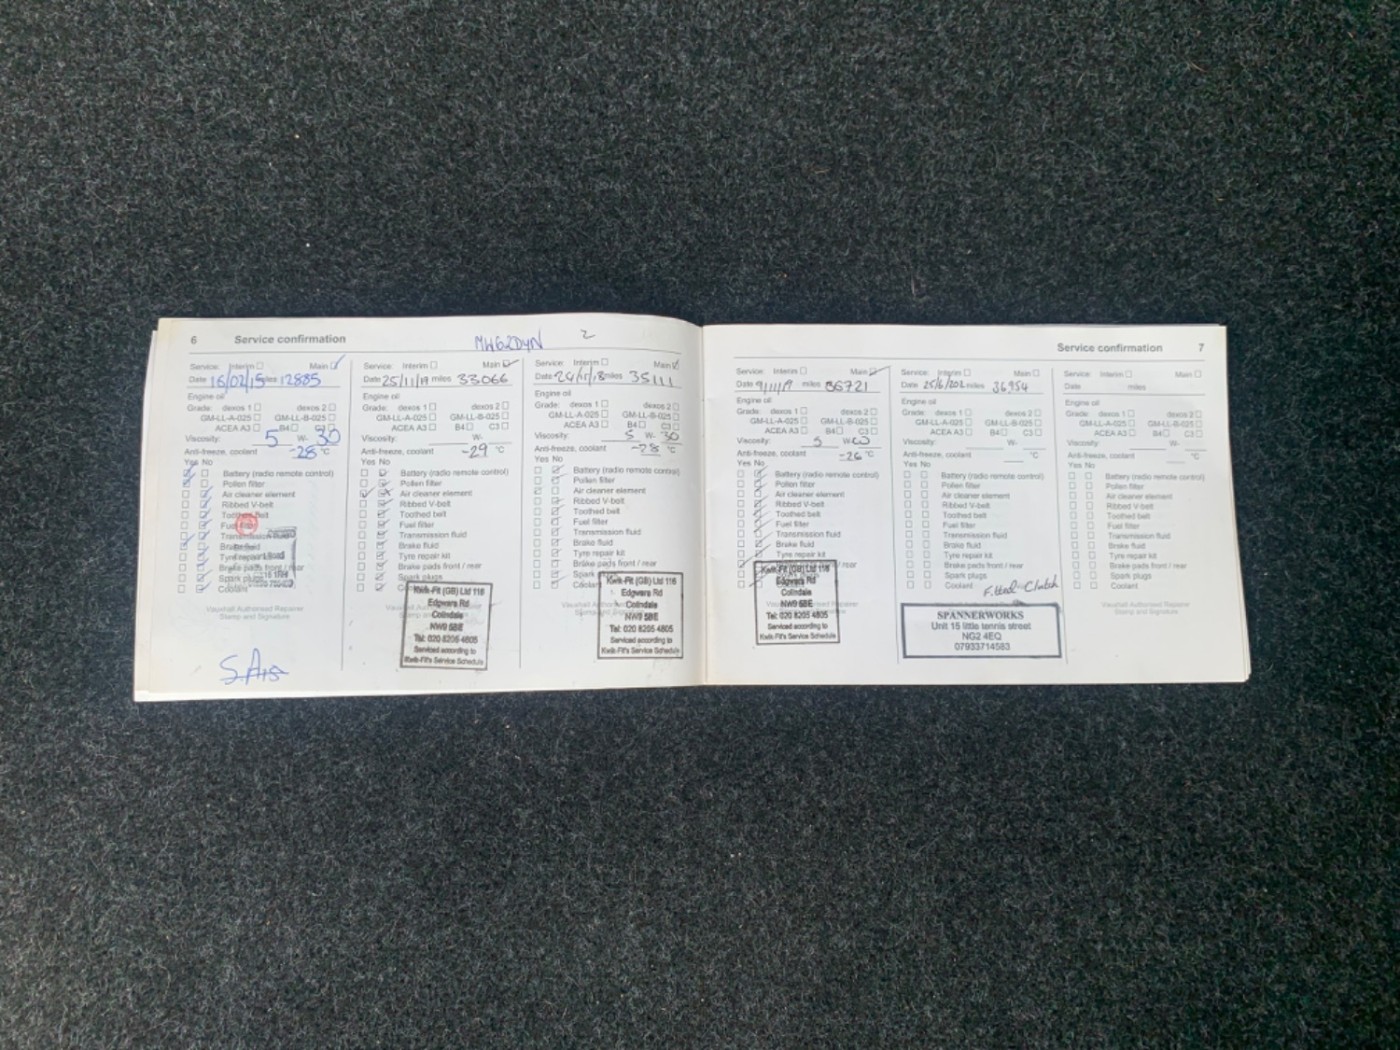 6 Service confirmation
MW62DYN 2
Service: Interim Main
Date 16/02/15 miles 12885
Engine oil
Grade: dexos 1 dexos 2
GM-LL-A-025 GM-LL-B-025
ACEA A3 B4 C3
Viscosity: 5 W- 30
Anti-freeze, coolant -28 °C
Yes No
Battery (radio remote control)
Pollen filter
Air cleaner element
Ribbed V-belt
Toothed belt
Fuel filter
Transmission fluid
Brake fluid
Tyre repair kit
Brake pads front / rear
Spark plugs
Coolant
Vauxhall Authorised Repairer
Stamp and Signature
Service: Interim Main
Date 25/11/17 miles 33066
Engine oil
Grade: dexos 1 dexos 2
GM-LL-A-025 GM-LL-B-025
ACEA A3 B4 C3
Viscosity: W-
Anti-freeze, coolant -29 °C
Yes No
Battery (radio remote control)
Pollen filter
Air cleaner element
Ribbed V-belt
Toothed belt
Fuel filter
Transmission fluid
Brake fluid
Tyre repair kit
Brake pads front / rear
Spark plugs
Kwik-Fit (GB) Ltd 116
Edgware Rd
Colindale
NW9 5BE
Tel: 020 8205 4805
Serviced according to
Kwik-Fit's Service Schedule
Service: Interim Main
Date 24/11/18 miles 35111
Engine oil
Grade: dexos 1 dexos 2
GM-LL-A-025 GM-LL-B-025
ACEA A3 B4 C3
Viscosity: 5 W- 30
Anti-freeze, coolant -28 °C
Yes No
Battery (radio remote control)
Pollen filter
Air cleaner element
Ribbed V-belt
Toothed belt
Fuel filter
Transmission fluid
Brake fluid
Tyre repair kit
Brake pads front / rear
Spark plugs
Coolant
Kwik-Fit (GB) Ltd 116
Edgware Rd
Colindale
NW9 5BE
Tel: 020 8205 4805
Serviced according to
Kwik-Fit's Service Schedule
Service confirmation 7
Service: Interim Main
Date 9/11/19 miles 36721
Engine oil
Grade: dexos 1 dexos 2
GM-LL-A-025 GM-LL-B-025
ACEA A3 B4 C3
Viscosity: 5 W-
Anti-freeze, coolant -26 °C
Yes No
Battery (radio remote control)
Pollen filter
Air cleaner element
Ribbed V-belt
Toothed belt
Fuel filter
Transmission fluid
Brake fluid
Tyre repair kit
Brake pads front / rear
Kwik-Fit (GB) Ltd 116
Edgware Rd
Colindale
NW9 5BE
Tel: 020 8205 4805
Serviced according to
Kwik-Fit's Service Schedule
Service: Interim Main
Date 25/6/202 miles 36954
Engine oil
Grade: dexos 1 dexos 2
GM-LL-A-025 GM-LL-B-025
ACEA A3 B4 C3
Viscosity: W-
Anti-freeze, coolant °C
Yes No
Battery (radio remote control)
Pollen filter
Air cleaner element
Ribbed V-belt
Toothed belt
Fuel filter
Transmission fluid
Brake fluid
Tyre repair kit
Brake pads front / rear
Spark plugs
Coolant
Fitted Clutch
SPANNERWORKS
Unit 15 little tennis street
NG2 4EQ
07933714583
Service: Interim Main
Date miles
Engine oil
Grade: dexos 1 dexos 2
GM-LL-A-025 GM-LL-B-025
ACEA A3 B4 C3
Viscosity: W-
Anti-freeze, coolant °C
Yes No
Battery (radio remote control)
Pollen filter
Air cleaner element
Ribbed V-belt
Toothed belt
Fuel filter
Transmission fluid
Brake fluid
Tyre repair kit
Brake pads front / rear
Spark plugs
Coolant
Vauxhall Authorised Repairer
Stamp and Signature